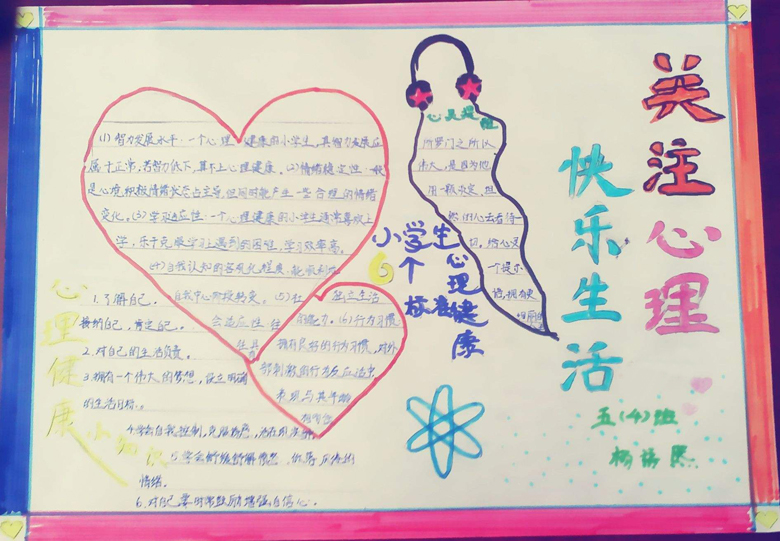 关注心理
快乐生活
五(4)班
小学生
6个
心理健康
标准
(1)智力发展水平:一个心理健康的小学生,其智力发展应
属于正常,若智力低下,算不上心理健康。(2)情绪稳定性一般
是心境积极情绪状态占主导,但同时能产生一些合理的情绪
变化。(3)学习适应性:一个心理健康的小学生通常喜欢上
学,乐于克服学习上遇到的困难,学习效率高。
(4)自我认知的客观化程度:能敢于从
自我中心阶段转变。(5)社
会适应性
独立生活
的能力。(6)行为习惯:
拥有良好的行为习惯,对外
部刺激的行为反应适中,
表现与其年龄
心灵
所罗门之所以
伟大,是因为他
用一般
去看待一
切,给心灵
一个提示
心理健康
小知识
1.了解自己,
接纳自己,肯定自己。
2.对自己的生活负责。
3.拥有一个伟大的梦想,设立明确
的生活目标。
4.学会自我控制,克服
5.学会
情绪。
6.对自己要时常鼓励增强自信心。